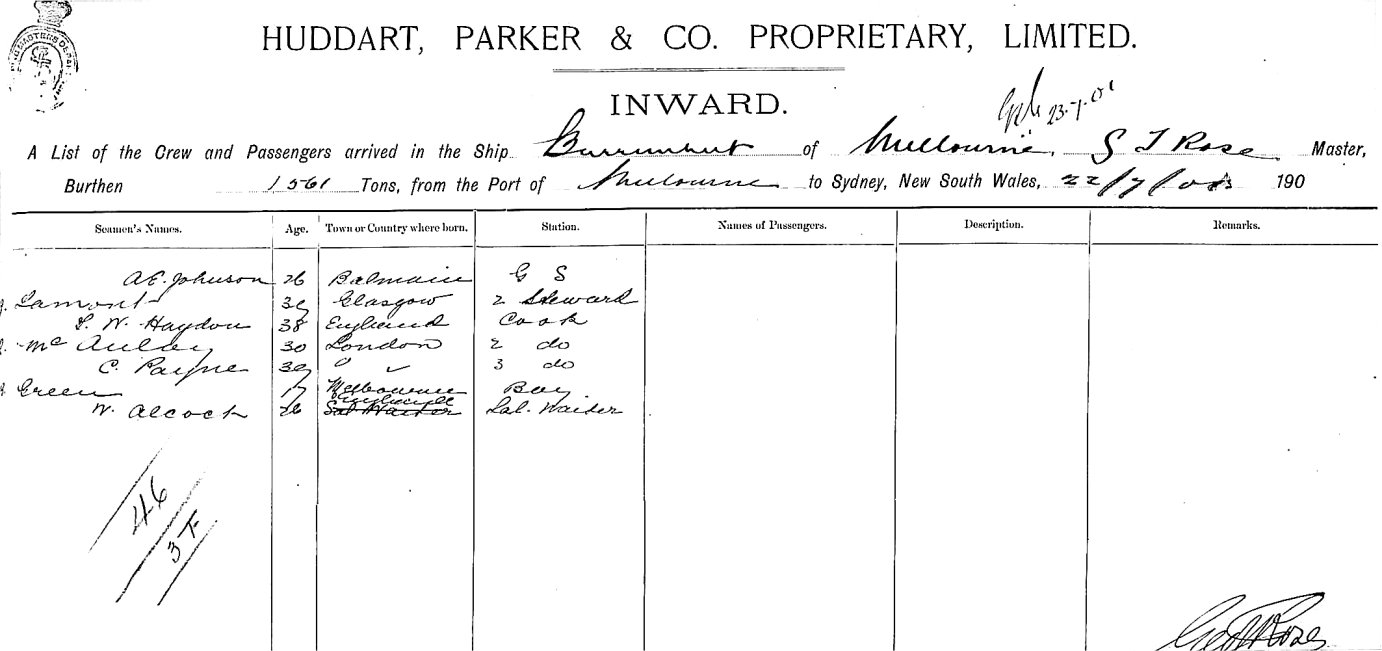 HUDDART, PARKER & CO. PROPRIETARY, LIMITED.
INWARD.
23.7.01
A List of the Crew and Passengers arrived in the Ship Burrumbeet of Melbourne, G T Rose Master,
Burthen 1561 Tons, from the Port of Melbourne to Sydney, New South Wales, 22/7/01 190
Seamen's Names. Age. Town or Country where born. Station. Names of Passengers. Description. Remarks.
A.E. Johnson 26 Balmain G S
Lamont 39 Glasgow 2 Steward
S. W. Haydon 38 England Cook
McAulay 30 London 2 do
C. Payne 39 " 3 do
Green 17 Melbourne Boy
W. Alcock 26 Sal Waiter Sal. Waiter
46
3 F
Geo T Rose